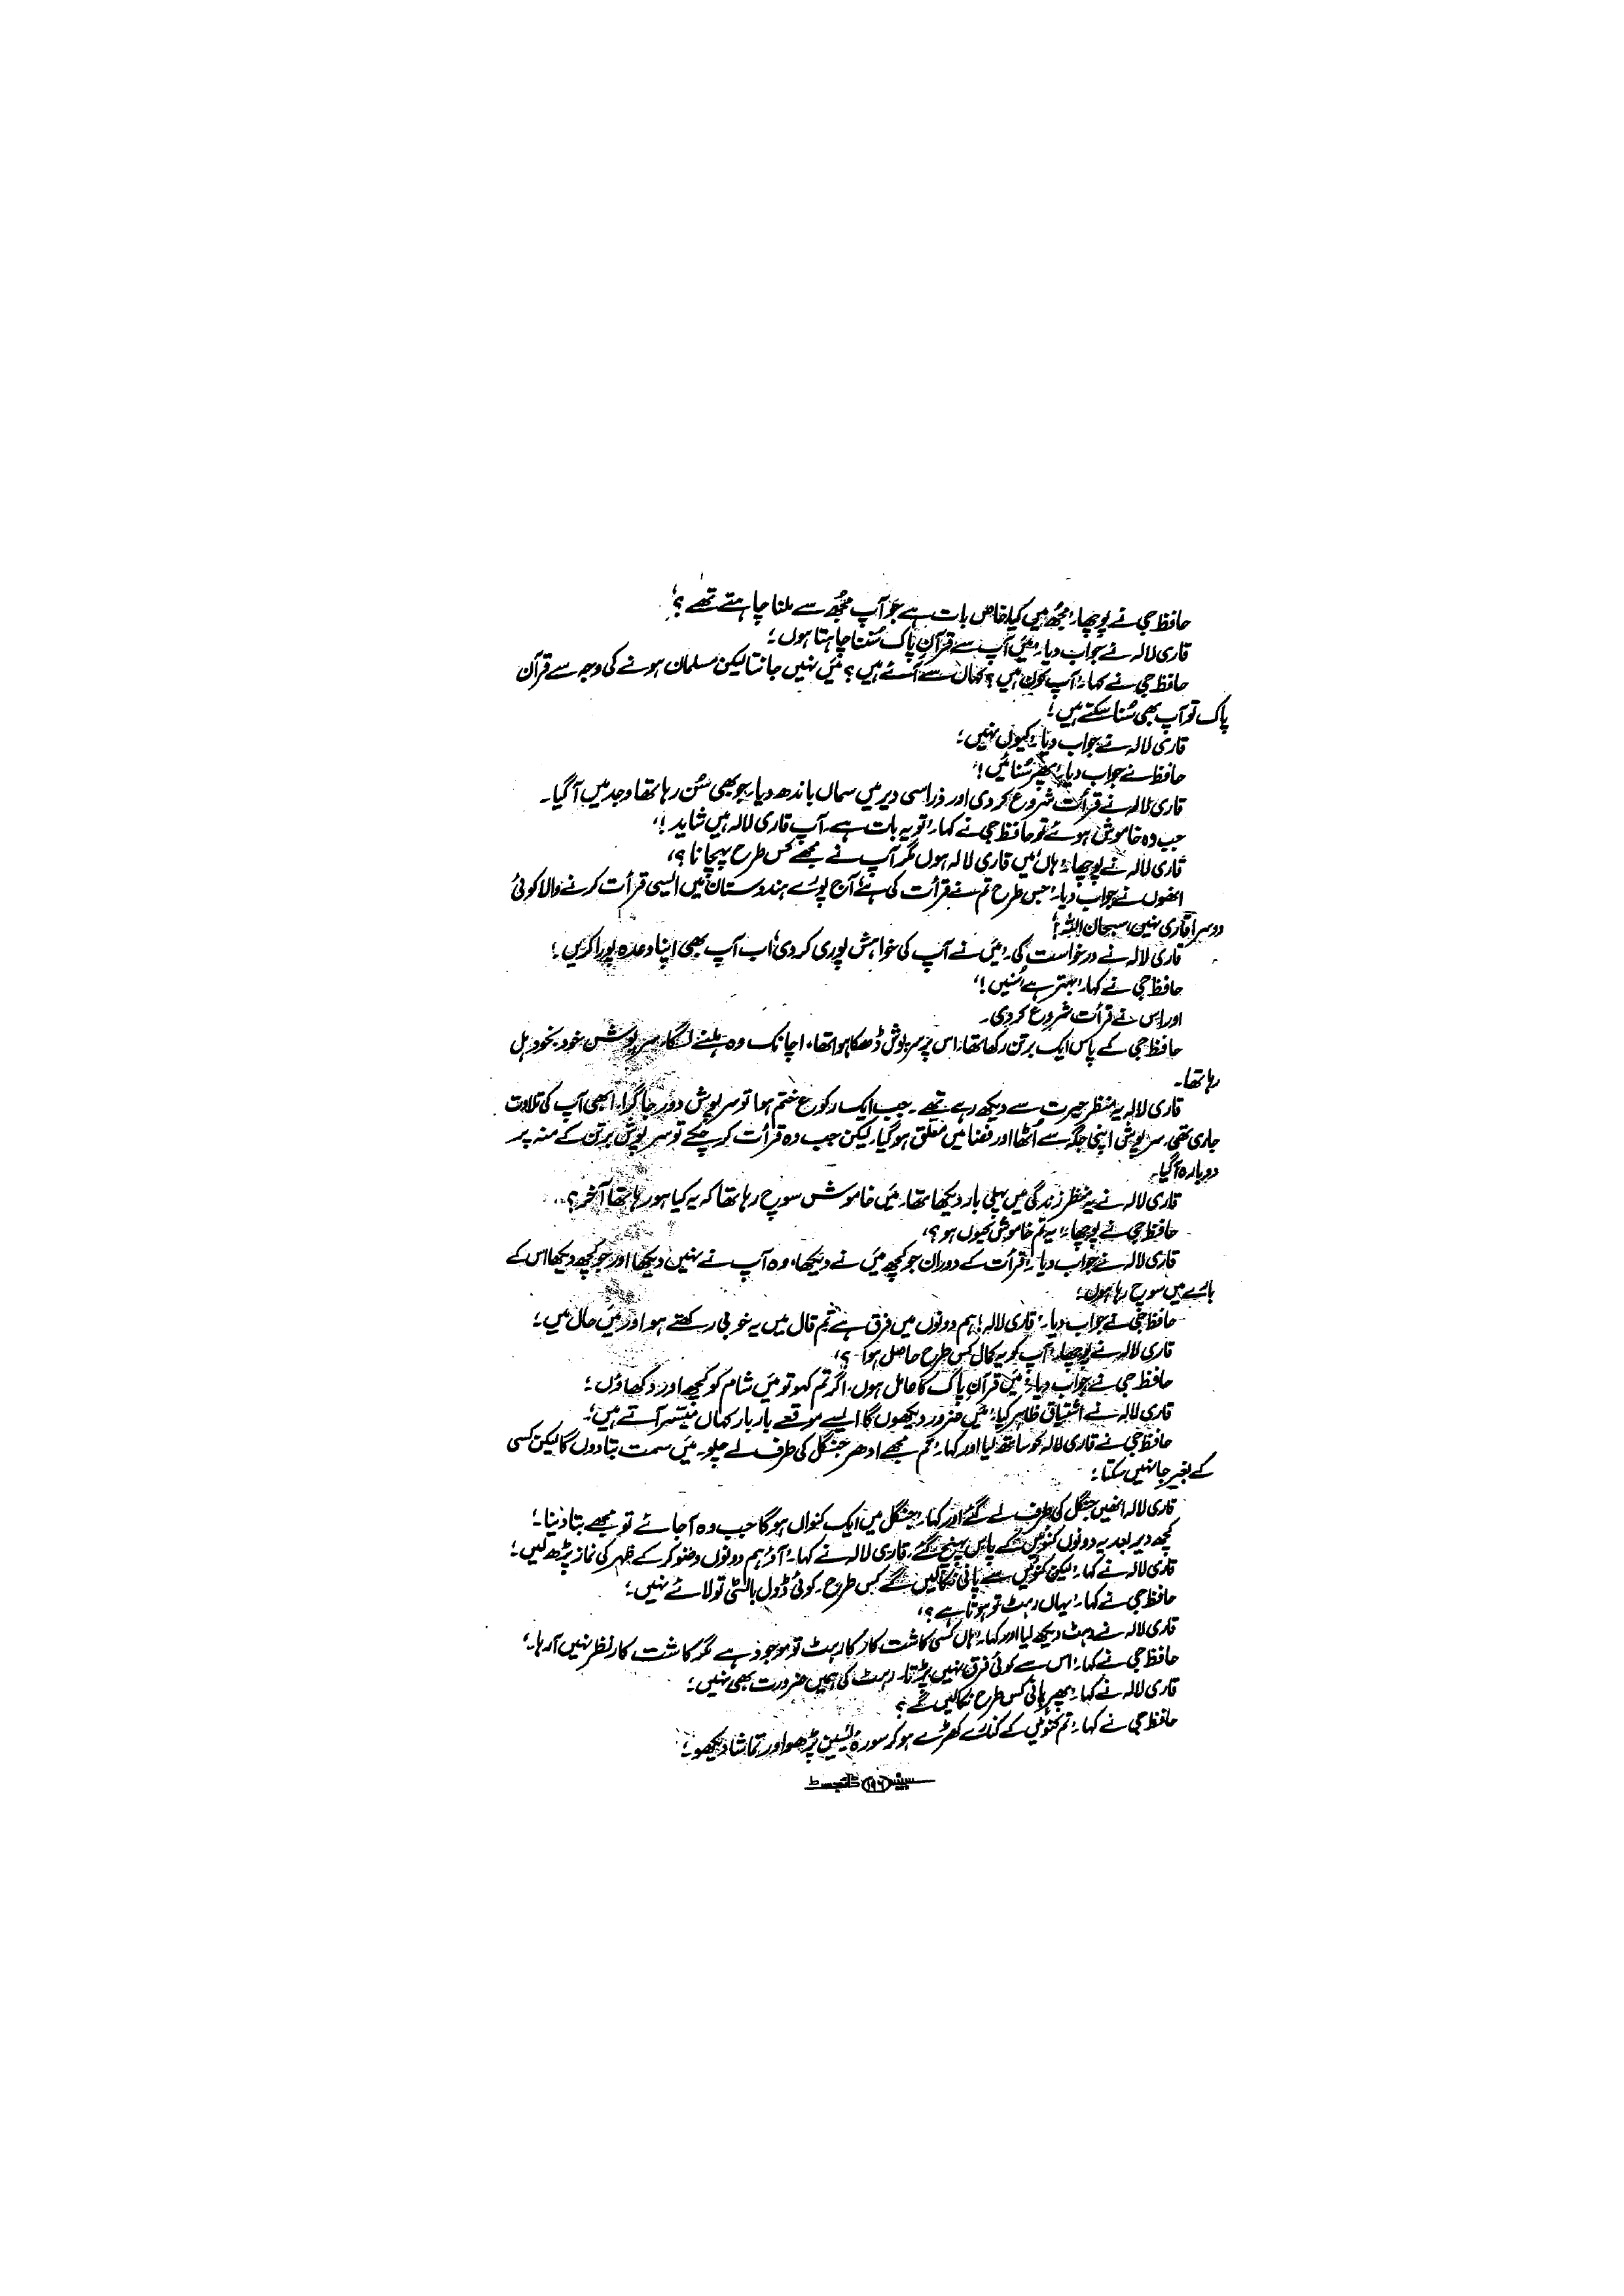 حافظ جی نے پوچھا۔ "مجھ میں کیا خاص بات ہے جو آپ مجھ سے ملنا چاہتے تھے؟"
قاری لالہ نے جواب دیا۔ "میں آپ سے قرآنِ پاک سُننا چاہتا ہوں"؛
حافظ جی نے کہا۔ "آپ کون ہیں؟ کہاں سے آئے ہیں؟ میں نہیں جانتا لیکن مسلمان ہونے کی وجہ سے قرآن
پاک تو آپ بھی سُنا سکتے ہیں"؛
قاری لالہ نے جواب دیا۔ "کیوں نہیں"؛
حافظ نے جواب دیا۔ "پھر سُنائیں!"
قاری لالہ نے قرأت شروع کر دی اور ذرا سی دیر میں سماں باندھ دیا۔ جو بھی سُن رہا تھا وجد میں آگیا۔
جب وہ خاموش ہوئے تو حافظ جی نے کہا۔ "تو یہ بات ہے۔ آپ قاری لالہ ہیں شاید!"
قاری لالہ نے پوچھا۔ "ہاں میں قاری لالہ ہوں مگر آپ نے مجھے کس طرح پہچانا؟"
انھوں نے جواب دیا۔ "جس طرح تم نے قرأت کی ہے، آج پورے ہندوستان میں ایسی قرأت کرنے والا کوئی
دوسرا قاری نہیں، سبحان اللہ!"
قاری لالہ نے درخواست کی۔ "میں نے آپ کی خواہش پوری کر دی، اب آپ بھی اپنا وعدہ پورا کریں"؛
حافظ جی نے کہا۔ "بہتر ہے سُنیں!"
اور اس نے قرأت شروع کر دی۔
حافظ جی کے پاس ایک برتن رکھا تھا، اس پر سرپوش ڈھکا ہوا تھا۔ اچانک وہ ہلنے لگا، سرپوش خود بخود ہل
رہا تھا۔
قاری لالہ یہ منظر حیرت سے دیکھ رہے تھے۔ جب ایک رکوع ختم ہوا تو سرپوش دور جا گرا۔ ابھی آپ کی تلاوت
جاری تھی۔ سرپوش اپنی جگہ سے اُٹھا اور فضا میں معلق ہوگیا۔ لیکن جب وہ قرأت کر چکے تو سرپوش برتن کے منہ پر
دوبارہ آگیا۔
قاری لالہ نے یہ منظر زندگی میں پہلی بار دیکھا تھا۔ میں خاموش سوچ رہا تھا کہ یہ کیا ہو رہا تھا آخر؟..
حافظ جی نے پوچھا۔ "یہ تم خاموش کیوں ہو؟"
قاری لالہ نے جواب دیا۔ "قرأت کے دوران جو کچھ میں نے دیکھا، وہ آپ نے نہیں دیکھا اور جو کچھ دیکھا اس کے
بارے میں سوچ رہا ہوں"؛
حافظ جی نے جواب دیا۔ "قاری لالہ! ہم دونوں میں فرق ہے تم قال میں یہ خوبی رکھتے ہو اور میں حال میں"؛
قاری لالہ نے پوچھا۔ "آپ کو یہ کمال کس طرح حاصل ہوا۔؟"
حافظ جی نے جواب دیا۔ "میں قرآنِ پاک کا عامل ہوں۔ اگر تم کہو تو میں شام کو کچھ اور دکھاؤں"؛
قاری لالہ نے اشتیاق ظاہر کیا۔ "میں ضرور دیکھوں گا ایسے موقعے بار بار کہاں میسّر آتے ہیں"؛
حافظ جی نے قاری لالہ کو ساتھ لیا اور کہا۔ "تم مجھے ادھر جنگل کی طرف لے چلو۔ میں سمت بتا دوں گا لیکن کسی
کے بغیر جا نہیں سکتا"؛
قاری لالہ انھیں جنگل کی طرف لے گئے اور کہا۔ "جنگل میں ایک کنواں ہوگا جب وہ آجائے تو مجھے بتا دینا"؛
کچھ دیر بعد یہ دونوں کنوئیں کے پاس پہنچ گئے۔ قاری لالہ نے کہا۔ "آؤ ہم دونوں وضو کر کے ظہر کی نماز پڑھ لیں"؛
قاری لالہ نے کہا۔ "لیکن کنوئیں سے پانی نکالیں گے کس طرح۔ کوئی ڈول بالٹی تو لائے نہیں"؛
حافظ جی نے کہا۔ "یہاں رہٹ تو ہوتا ہے؟"
قاری لالہ نے رہٹ دیکھ لیا اور کہا۔ "ہاں کسی کاشت کار کا رہٹ تو موجود ہے مگر کاشت کار نظر نہیں آرہا۔"
حافظ جی نے کہا۔ "اس سے کوئی فرق نہیں پڑتا۔ رہٹ کی ہمیں ضرورت بھی نہیں"؛
قاری لالہ نے کہا۔ "پھر پانی کس طرح نکالیں گے؟
حافظ جی نے کہا۔ "تم کنوئیں کے کنارے کھڑے ہو کر سورۂ یٰسین پڑھو اور تماشا دیکھو"؛
سسپنس (۱۹۶) ڈائجسٹ